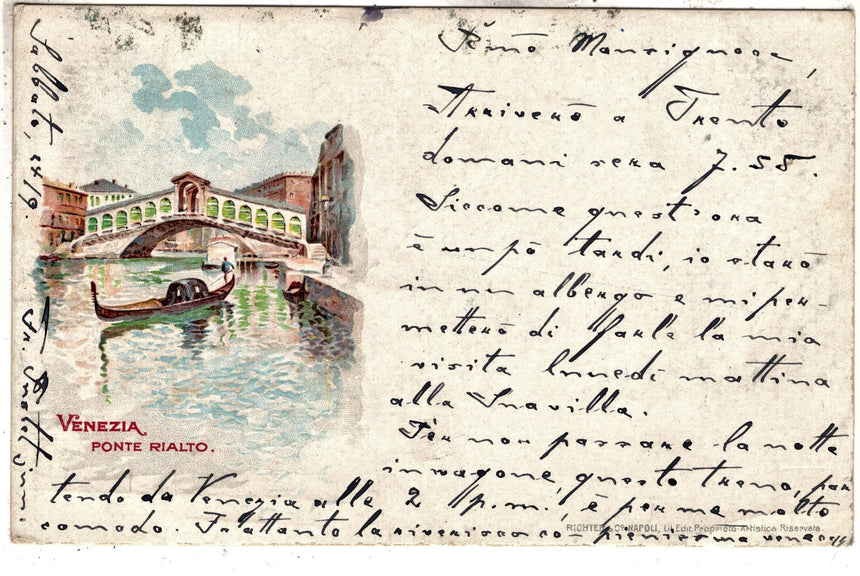 Monsignore,
Arriverò a Trento
domani sera 7.55.
Siccome quest'ora
è un pò tardi, io starò
in un albergo e mi per-
metterò di farle la mia
visita lunedì mattina
alla
Per non passare la notte
in vagone, questo treno, par
tendo da Venezia alle 2 p.m., è per me molto
comodo. Frattanto la riverisco co
Sabbato, 24/9.
VENEZIA
PONTE RIALTO.
RICHTER & Cº NAPOLI, Lit. Edit. Proprietà Artistica Riservata.